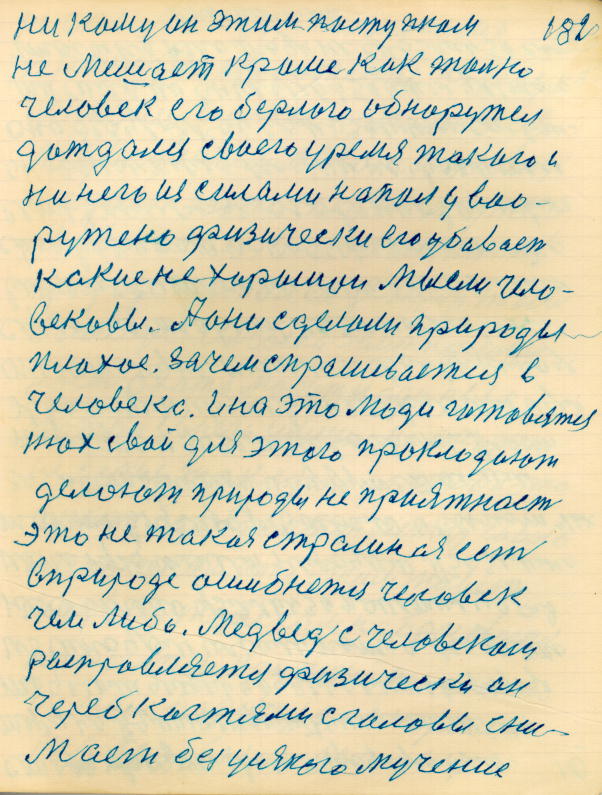 ни кому он этим поступком 182
не мешает кроме как только
человек его берлого обноружел
дождался своего уремя такого и
на него из силами напал у воо-
ружено физически его убивает
какие не хорошои мысли чело-
вековы. А они сделали природы
плохое. Зачем спрашивается в
человека. И на это люди готовятся
труд свой для этого прокладают
делоют природы не приятност
это не такая страшная ест
в природе ошибнется человек
чем либо. Медвед с человеком
расправляется физически он
череб когтями с головы сни-
мает без уякого мучение